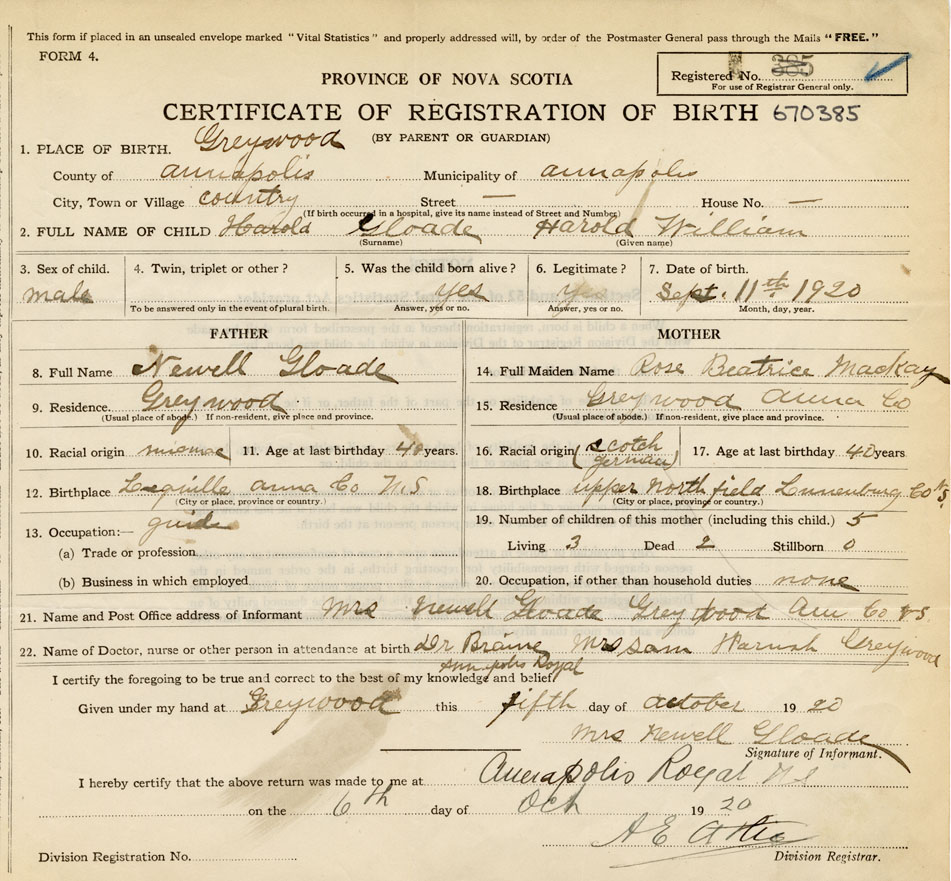 This form if placed in an unsealed envelope marked "Vital Statistics" and properly addressed will, by order of the Postmaster General pass through the Mails "FREE."
FORM 4.
Registered No. 385
For use of Registrar General only.
PROVINCE OF NOVA SCOTIA
CERTIFICATE OF REGISTRATION OF BIRTH 670385
(BY PARENT OR GUARDIAN)
1. PLACE OF BIRTH. Greywood
County of annapolis Municipality of annapolis
City, Town or Village country Street — House No. —
(If birth occurred in a hospital, give its name instead of Street and Number)
2. FULL NAME OF CHILD Harold Gloade Harold William
(Surname) (Given name)
3. Sex of child. 4. Twin, triplet or other? 5. Was the child born alive? 6. Legitimate? 7. Date of birth.
male yes yes Sept. 11th 1920
To be answered only in the event of plural birth. Answer, yes or no. Answer, yes or no. Month, day, year.
FATHER MOTHER
8. Full Name Newell Gloade 14. Full Maiden Name Rose Beatrice Mackay
9. Residence. Greywood 15. Residence Greywood Anna Co
(Usual place of abode.) If non-resident, give place and province. (Usual place of abode.) If non-resident, give place and province.
10. Racial origin micmac 11. Age at last birthday years. 16. Racial origin (scotch german) 17. Age at last birthday 40 years
12. Birthplace Lequille anna Co N.S 18. Birthplace upper Northfield Lunenburg Co N.S
(City or place, province or country.) (City or place, province or country.)
13. Occupation:— guide 19. Number of children of this mother (including this child.) 5
(a) Trade or profession Living 3 Dead 2 Stillborn 0
(b) Business in which employed 20. Occupation, if other than household duties none
21. Name and Post Office address of Informant Mrs Newell Gloade Greywood Ann Co NS.
22. Name of Doctor, nurse or other person in attendance at birth Dr Braine Mrs Sam Greywood
Annapolis Royal
I certify the foregoing to be true and correct to the best of my knowledge and belief
Given under my hand at Greywood this fifth day of october 19 20
Mrs Newell Gloade
Signature of Informant.
I hereby certify that the above return was made to me at Annapolis Royal N S
on the 6th day of Oct 19 20
A E
Division Registration No. Division Registrar.